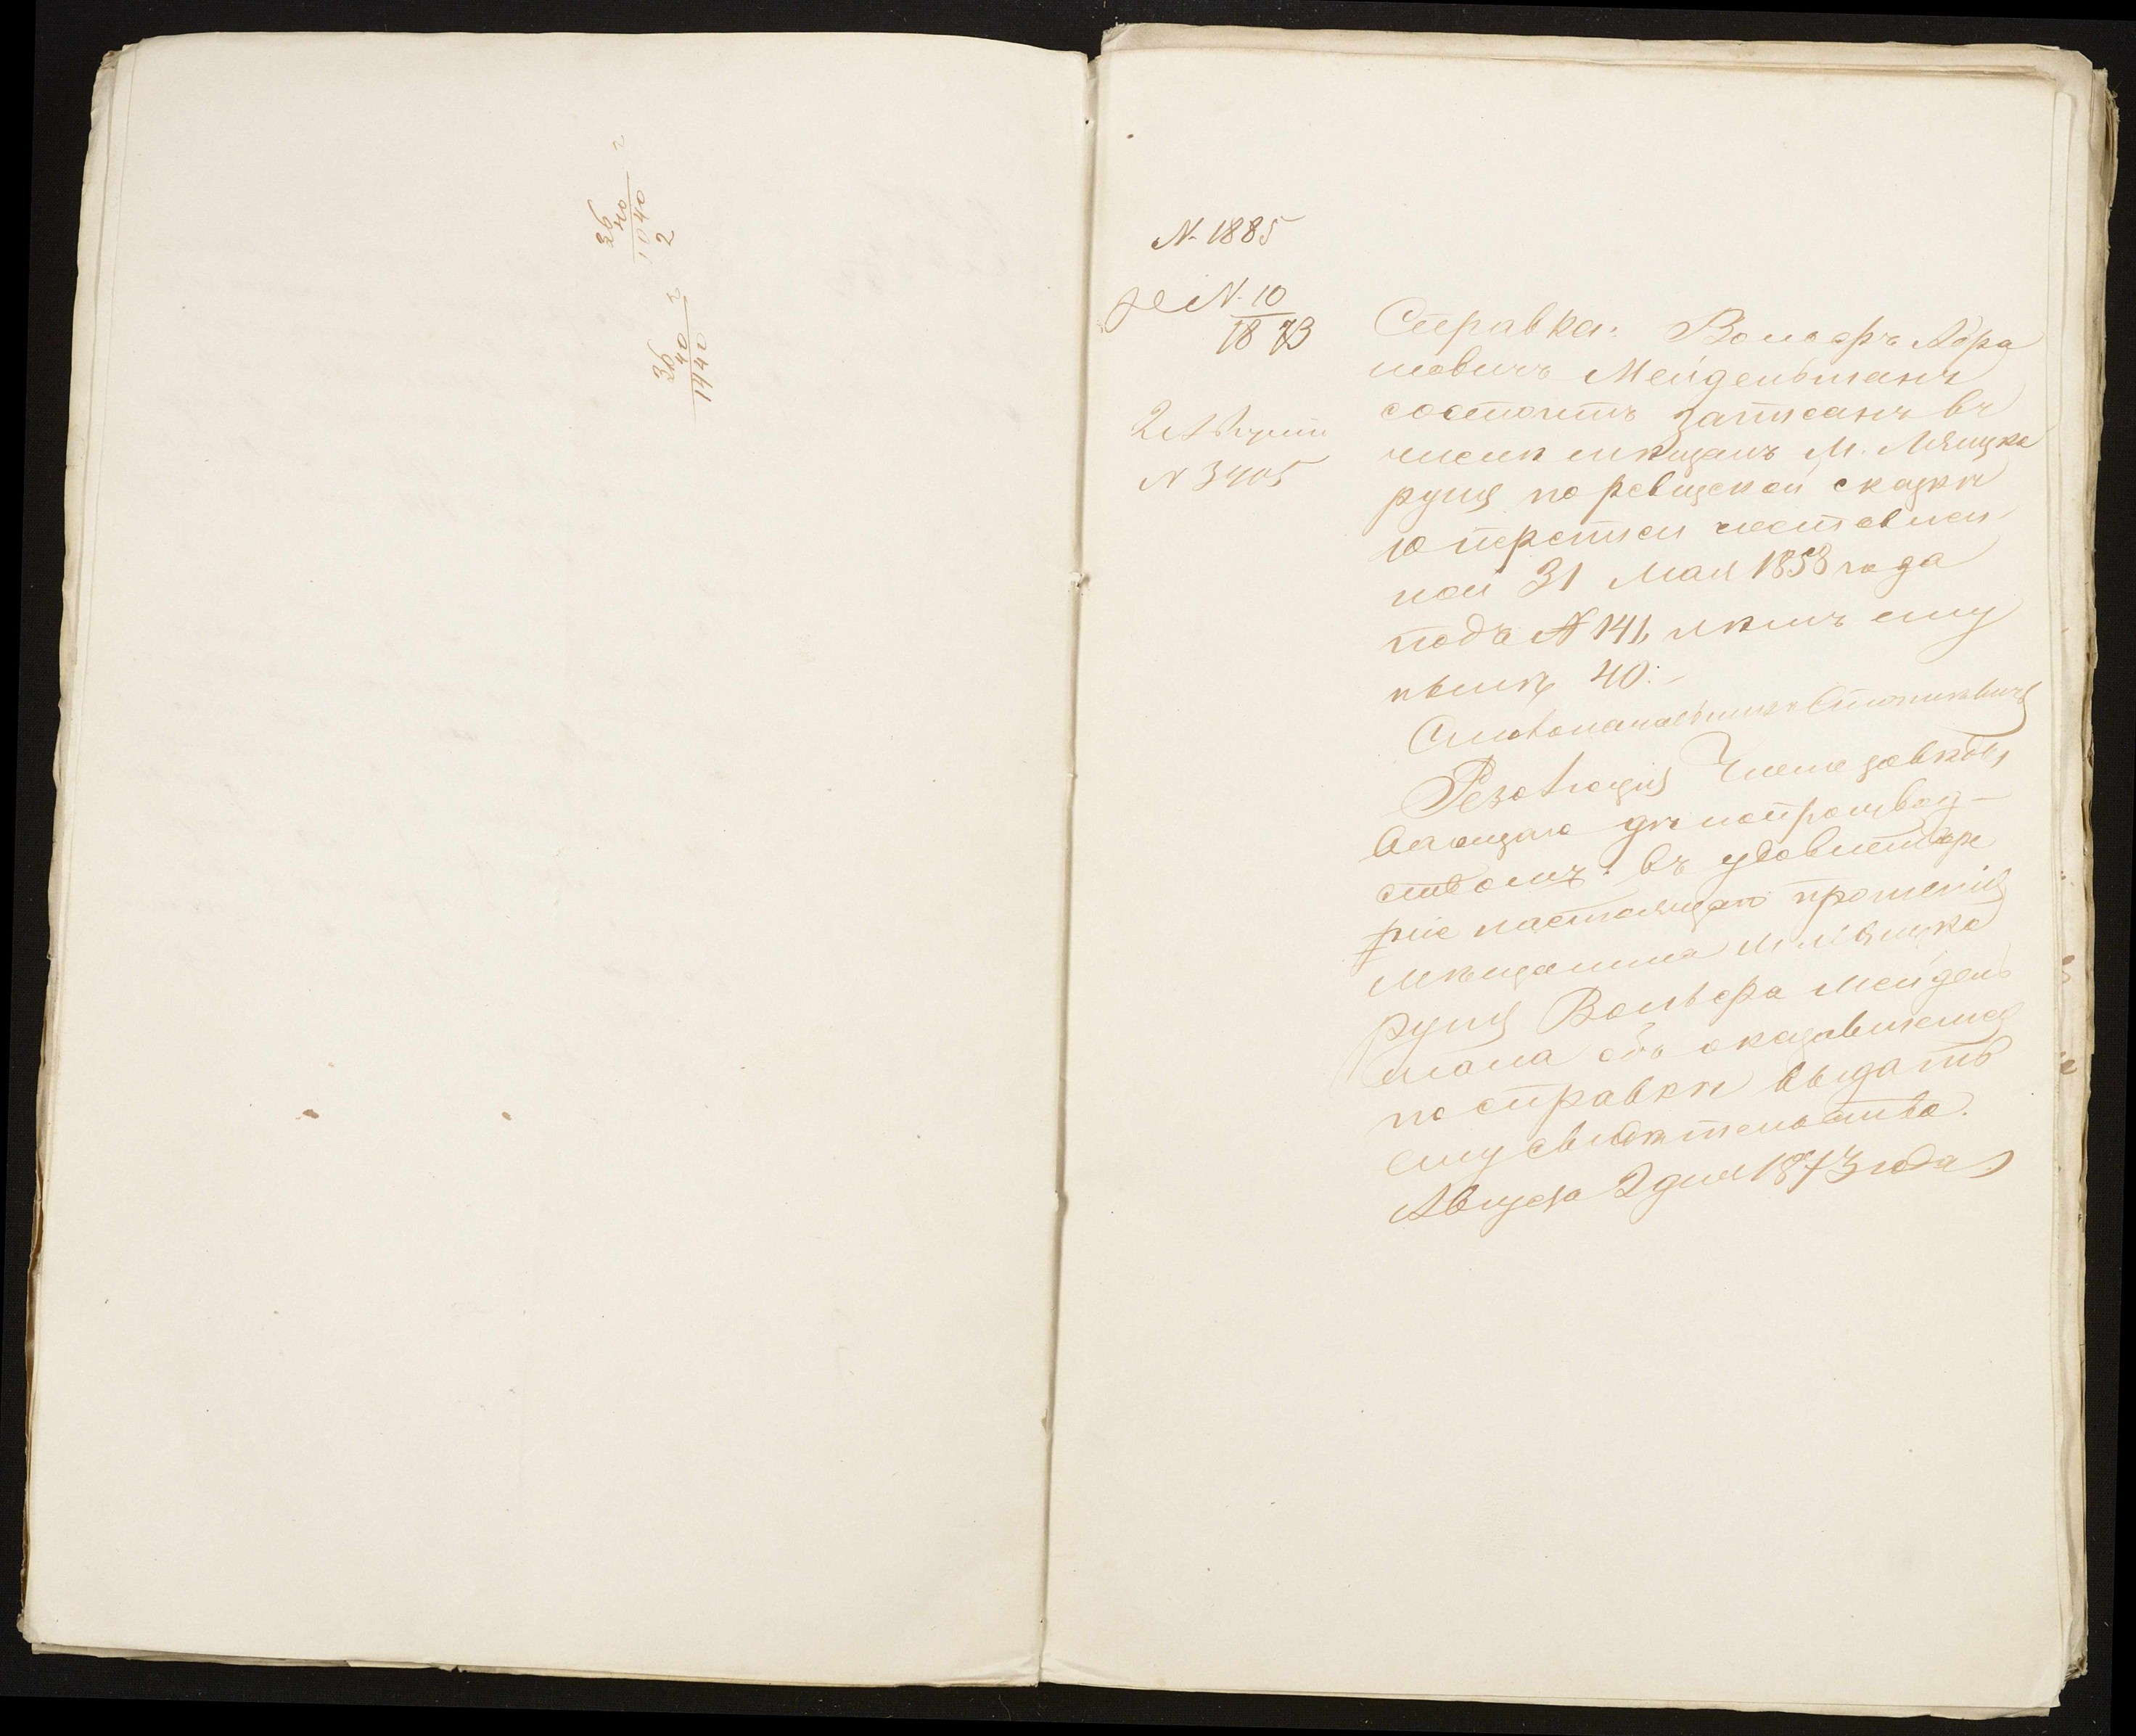 26
40
1040
2
36
40
1440
N. 1885
N. 10
1873
2 Августа
N 3405
Справка: Вольфъ Абра
мовичъ Мейдельманъ
состоитъ записанъ въ
числѣ мѣщанъ М.
по ревизской сказкѣ
10 переписи составлен
ной 31 Мая 1858 года
подъ N 141, лѣтъ ему
нынѣ 40.
Столоначальникъ
Резолюція Члена завѣды
вающаго дѣлопроизвод-
ствомъ: въ удовлетворе
ніе настоящаго прошенія
мѣщанина М.
Вольфа Мейдель
мана объ оказавшемся
по справкѣ выдать
ему свидѣтельство.
Августа 2 дня 1873 года